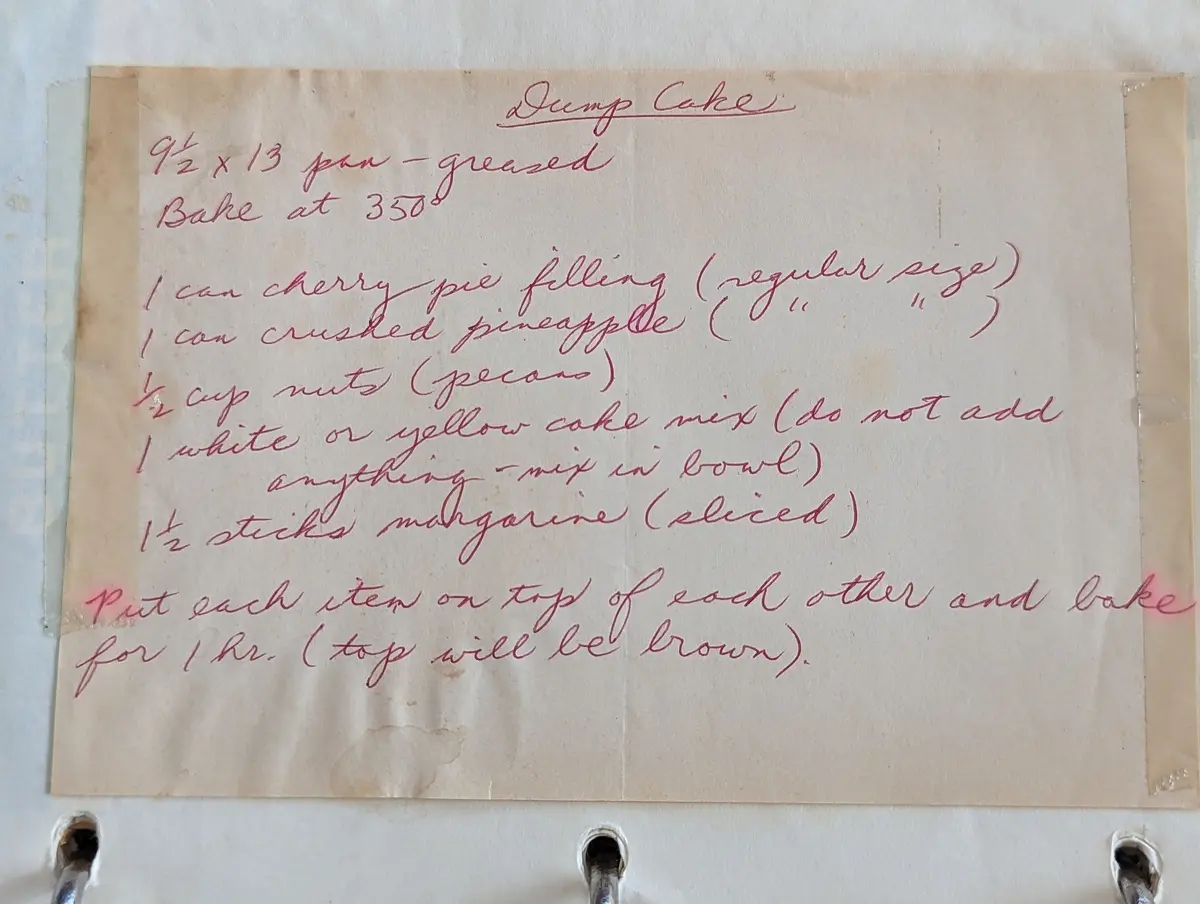 Dump Cake
9½ x 13 pan - greased
Bake at 350°
1 can cherry pie filling (regular size)
1 can crushed pineapple ( " " )
½ cup nuts (pecans)
1 white or yellow cake mix (do not add
anything - mix in bowl)
1½ sticks margarine (sliced)
Put each item on top of each other and bake
for 1 hr. (top will be brown).